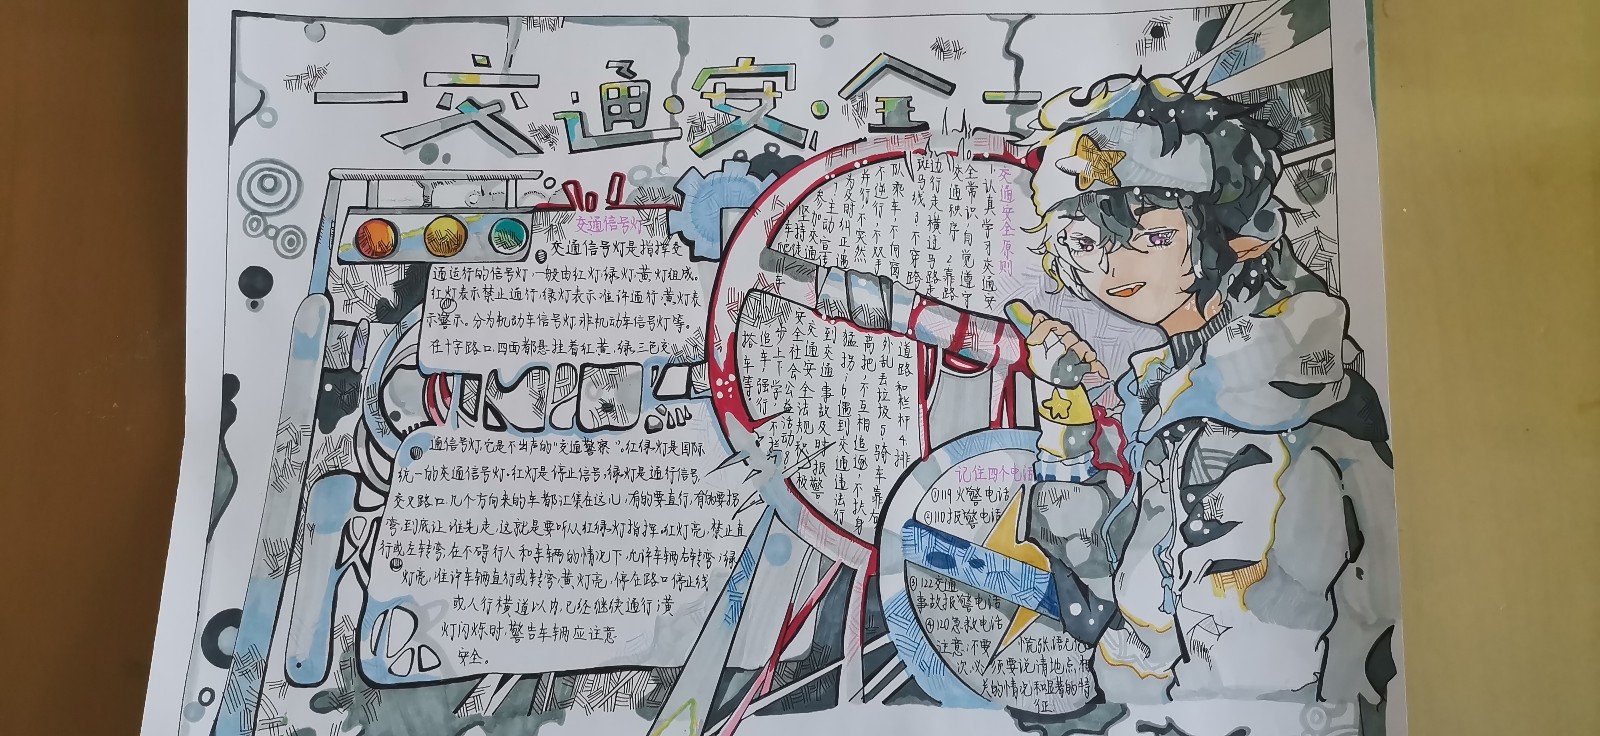 交通·安·全
交通信号灯
交通信号灯是指挥交
通运行的信号灯,一般由红灯,绿灯,黄灯组成。
红灯表示禁止通行,绿灯表示准许通行,黄灯表
示警示。分为机动车信号灯,非机动车信号灯等。
在十字路口,四面都悬挂着红,黄,绿,三色交
通信号灯,它是不出声的“交通警察”。红绿灯是国际
统一的交通信号灯,红灯是停止信号,绿灯是通行信号,
交叉路口,几个方向来的车都汇集在这儿,有的要直行,有的要拐
弯,到底让谁先走,这就是要听从红绿灯指挥。红灯亮,禁止直
行或左转弯,在不碍行人和车辆的情况下,允许车辆右转弯;绿
灯亮,准许车辆直行或转弯;黄灯亮,停在路口停止线
或人行横道以内,已经继续通行;黄
灯闪烁时,警告车辆应注意
安全。
交通安全原则
1认真学习交通安
全常识,自觉遵守
交通秩序,2靠路
边行走,横过马路走
斑马线,3不穿跨
道路和栏杆,4排
队乘车,不向窗
外乱丢垃圾,5骑车靠右
不逆行,不双手
离把,不互相追逐,不扶身
并行,不突然
猛拐,6遇到交通违法行
为及时纠正,遇
到交通事故及时报警
7主动宣传
交通安全法规,积极
参加交通
安全社会公益活动,8
坚持徒
步上下学,不
追车,强行
搭车等。
记住四个电话
①119火警电话
②110报警电话
③122交通
事故报警电话
④120急救电话
注意:不要慌张,语无伦
次,必须要说清地点,相
关的情况和显著的特
征。